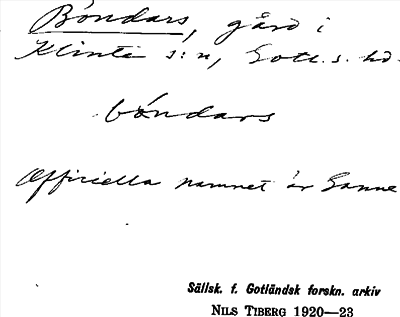 Bóndars, gård i
Klinte s:n, Gotl. s. hd.
bóndars
Officiella namnet är Sanne
Sällsk. f. Gotländsk forskn. arkiv
NILS TIBERG 1920—23